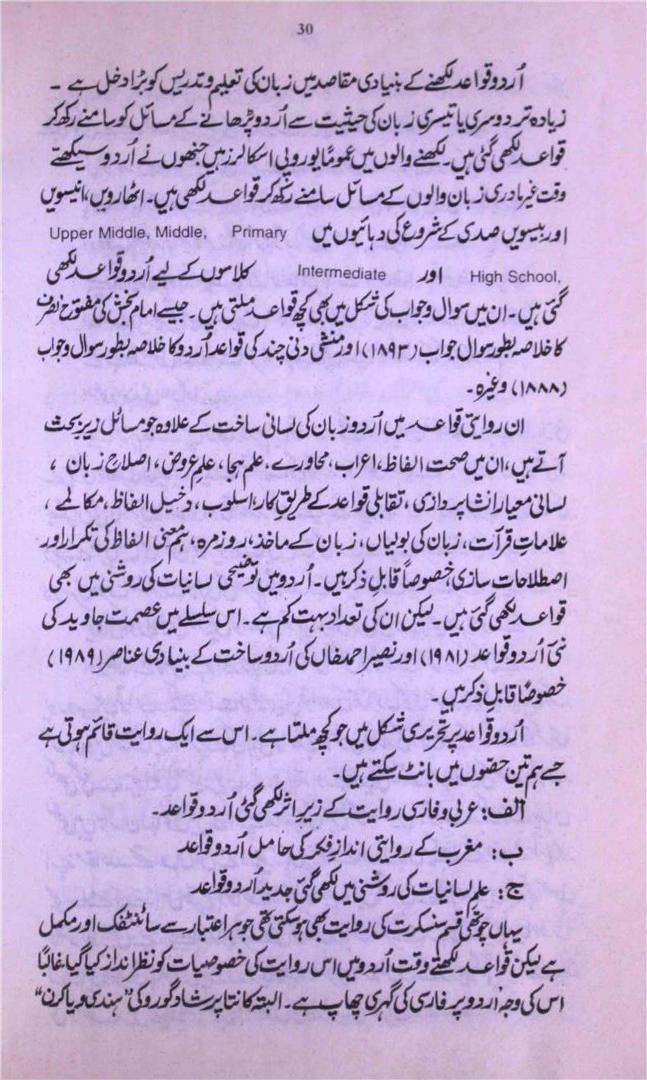 30
اُردو قواعد لکھنے کے بنیادی مقاصد میں زبان کی تعلیم و تدریس کو بڑا دخل ہے ۔
زیادہ تر دوسری یا تیسری زبان کی حیثیت سے اُردو پڑھانے کے مسائل کو سامنے رکھ کر
قواعد لکھی گئی ہیں۔ لکھنے والوں میں عموماً یوروپی اسکالرز ہیں جنھوں نے اُردو سیکھتے
وقت غیر مادری زبان والوں کے مسائل سامنے رکھ کر قواعد لکھی ہیں۔ اٹھارویں، انیسویں
اور بیسویں صدی کے شروع کی دہائیوں میں Upper Middle, Middle, Primary
High School, اور Intermediate کلاسوں کے لیے اُردو قواعد لکھی
گئی ہیں۔ ان میں سوال وجواب کی شکل میں بھی کچھ قواعد ملتی ہیں۔ جیسے امام بخش کی مفتوح لصرف
کا خلاصہ بطور سوال جواب (۱۸۹۳) اور منشی دنی چند کی قواعد اُردو کا خلاصہ بطور سوال وجواب
(۱۸۸۸) وغیرہ۔
ان روایتی قواعد میں اُردو زبان کی لسانی ساخت کے علاوہ جو مسائل زیر بحث
آتے ہیں، ان میں صحت الفاظ، اعراب، محاورے، علم ہجا، علم عروض، اصلاح زبان ،
لسانی معیار، انشا پردازی، تقابلی قواعد کے طریق کار، اسلوب، دخیل الفاظ، مکالمے ،
علاماتِ قرأت، زبان کی بولیاں، زبان کے ماخذ، روزمرہ، ہم معنی الفاظ کی تکرار اور
اصطلاحات سازی خصوصاً قابل ذکر ہیں۔ اُردو میں توضیحی لسانیات کی روشنی میں بھی
قواعد لکھی گئی ہیں۔ لیکن ان کی تعداد بہت کم ہے۔ اس سلسلے میں عصمت جاوید کی
نئی اُردو قواعد (۱۹۸۱) اور نصیر احمد خاں کی اُردو ساخت کے بنیادی عناصر (۱۹۸۹)
خصوصاً قابل ذکر ہیں۔
اُردو قواعد پر تحریری شکل میں جو کچھ ملتا ہے۔ اس سے ایک روایت قائم ہوتی ہے
جسے ہم تین حصّوں میں بانٹ سکتے ہیں۔
الف: عربی و فارسی روایت کے زیر اثر لکھی گئی اُردو قواعد۔
ب: مغرب کے روایتی اندازِ فکر کی حامل اُردو قواعد
ج: علم لسانیات کی روشنی میں لکھی گئی جدید اُردو قواعد
یہاں چوتھی قسم سنسکرت کی روایت بھی ہو سکتی تھی جو ہر اعتبار سے سائنٹفک اور مکمل
ہے لیکن قواعد لکھتے وقت اُردو میں اس روایت کی خصوصیات کو نظر انداز کیا گیا۔ غالباً
اس کی وجہ اُردو پر فارسی کی گہری چھاپ ہے۔ البتہ کانتا پرشاد گورو کی "ہندی ویاکرن"